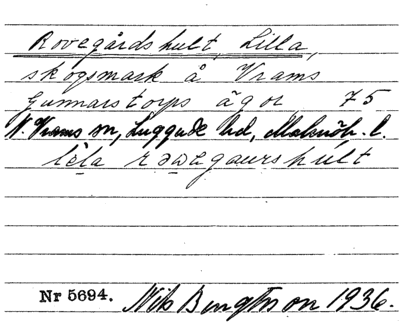 Rovegårdshult, Lilla,
skogsmark å Vrams
Gunnarstorps ägor 75
N. Vrams sn, Luggude hd, Malmöh. l.
lela rɔwegaurshult
Nr 5694. Nils Bengtsson 1936.